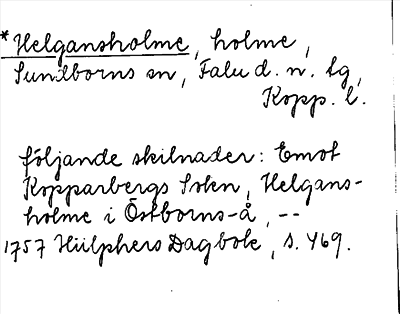 *Helgansholme, holme,
Sundborns sn, Falu d. n. tg,
Kopp. l.
följande skilnader: Emot
Kopparbergs Soken, Helgans-
holme i Östborns-å, --
1757 Hülphers Dagbok, s. 469.